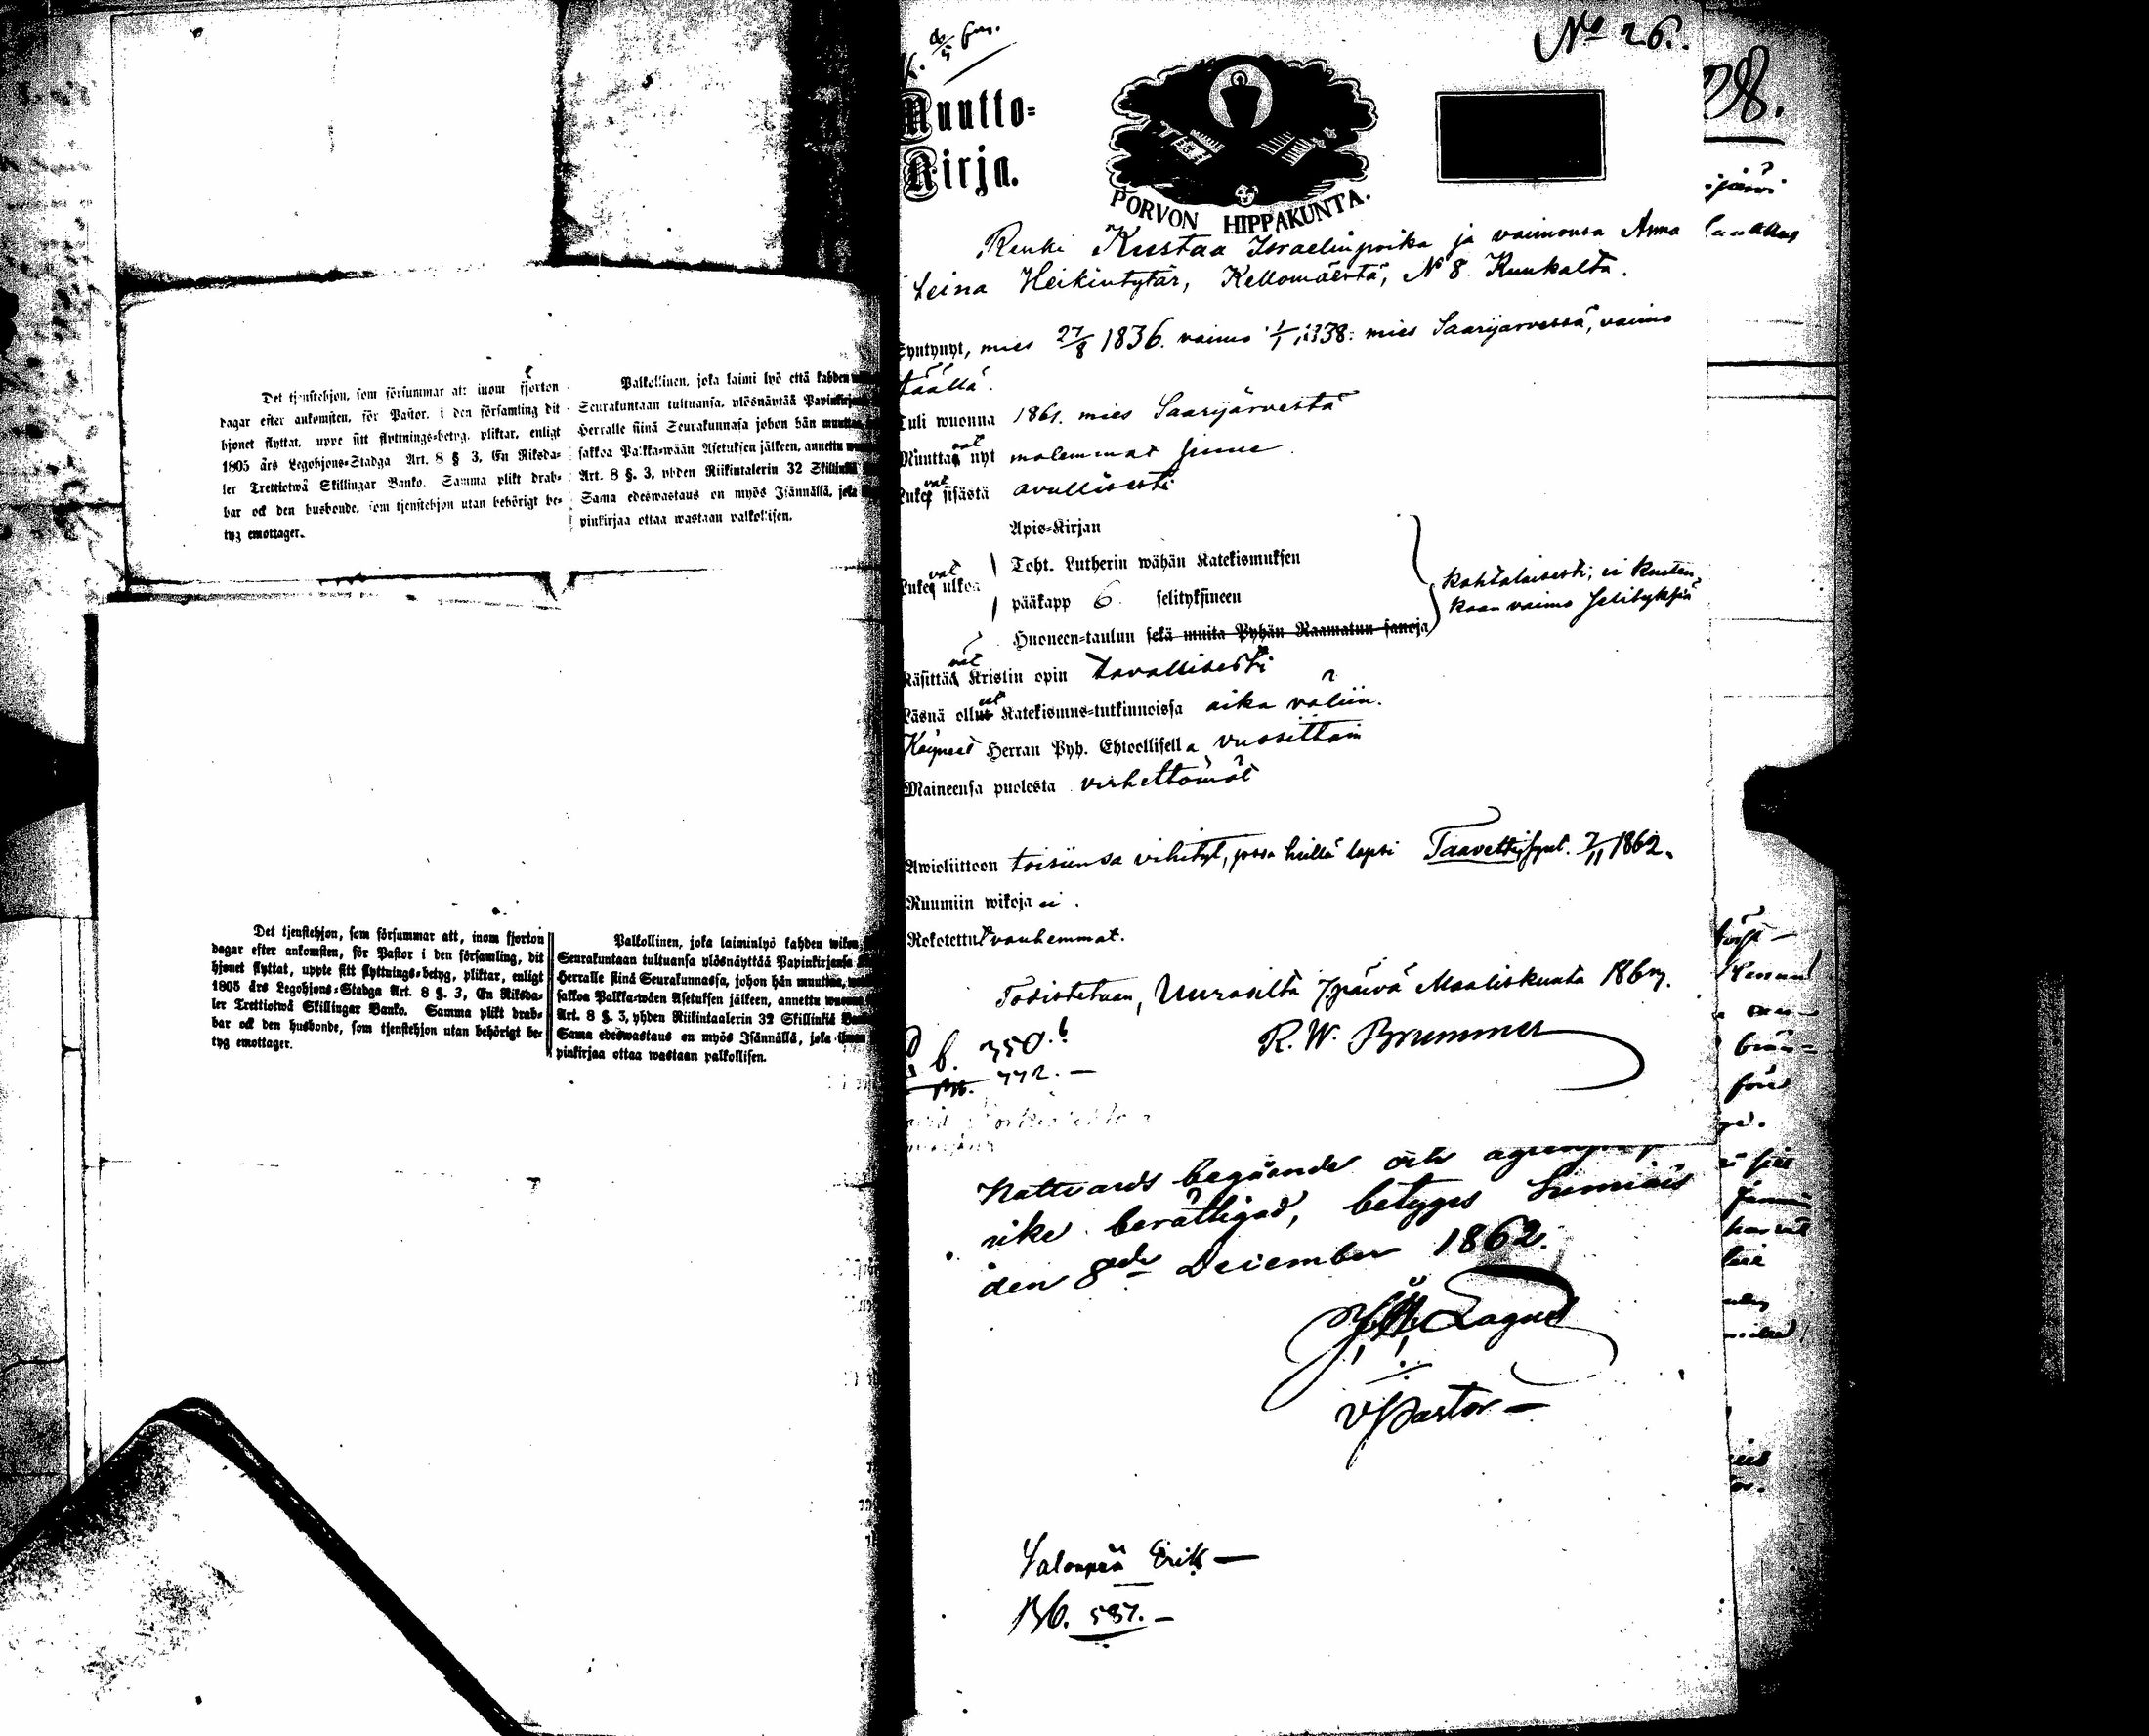 Det tjenstehjon, som försummar att inom fjorton
dagar efter ankomsten, för Pastor, i den församling dit
hjonet flyttat, uppte sitt flyttnings-betyg, pliktar, enligt
1805 års Legohjons-Stadga Art. 8 § 3, En Riksda-
ler Trettiotwå Skillingar Banko. Samma plikt drab-
bar ock den husbonde, som tjenstehjon utan behörigt be-
tyg emottager.
Palkollinen, joka laimi lyö että kahden
Seurakuntaan tultuansa, ylösnäytää
Herralle siinä Seurakunnasa johon hän
sakkoa Palkka-wään Asetuksen jälkeen, annettu
Art. 8 §. 3, yhden Riikintalerin 32
Sama edeswastaus on myös Isännällä,
pinkirjaa ottaa wastaan palkollisen.
Det tjenstehjon, som försummar att, inom fjorton
dagar efter ankomsten, för Pastor i den församling, dit
hjonet flyttat, uppte sitt flyttnings-betyg, pliktar, enligt
1805 års Legohjons-Stadga Art. 8 §. 3, En Riksda-
ler Trettiotwå Skillingar Banko. Samma plikt drab-
bar ock den husbonde, som tjenstehjon utan behörigt be-
tyg emottager.
Palkollinen, joka laiminlyö kahden
Seurakuntaan tultuansa ylösnäyttää Papinkirjansa
Herralle siinä Seurakunnassa, johon hän
sakkoa Palkka-wäen Asetuksen jälkeen, annettu
Art. 8 §. 3, yhden Riikintaalerin 32 Skillinkiä
Sama edeswastaus on myös Isännällä, joka
pinkirjaa ottaa wastaan palkollisen.
No 26.
Muutto-
Kirja.
PORVON HIPPAKUNTA.
Renki Kustaa Israelinpoika ja vaimonsa Anna
Leina Heikintytär, Kellomäestä, No 8. Kuukalta.
Syntynyt, mies 27/8 1836. vaimo 1/1 1838: mies Saarijärvessä, vaimo
täällä.
Tuli wuonna 1861. mies Saarijärvestä
Muuttavat nyt molemmat sinne
Lukevat sisästä avullisesti
Apis-Kirjan
Toht. Lutherin wähän Katekismuksen
Lukevat ulkoa
pääkapp 6. selityksineen
Huoneen-taulun sekä muita Pyhän Raamatun sanoja
kohtalaisesti; ei kuiten-
kaan vaimo selityksiä
Käsittävät Kristin opin tavallisesti
Läsnä olleet Katekismus-tutkinnoissa aika väliin.
Käyneet Herran Pyh. Ehtoollisella vuosittain
Maineensa puolesta virhettömät
Awioliittoon toisiinsa vihityt, jossa heillä lapsi Taavetti, synt. 7/11 1862.
Ruumiin wikoja ei.
Rokotettu vanhemmat.
Todistetaan, Uuraisilta 7 päivä Maaliskuuta 186
R. W. Brummer
b. 350.
772. —
Nattvards begående och
rike berättigad, betyges Sumiais
den 8de December 1862.
Lagus
V Pastor —
Salonpää Erik —
Bb. 587. —